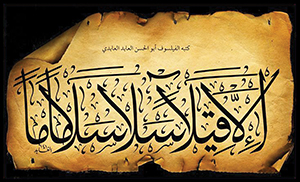 كتبه الفيلسوف أبو الحسن العابد العابدي
إلا قيلا سلاما سلاما